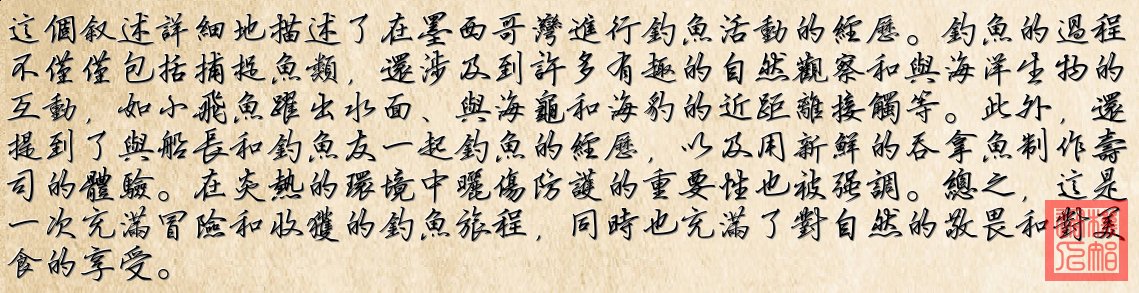 這個叙述詳細地描述了在墨西哥灣進行釣魚活動的經歷。釣魚的過程
不僅僅包括捕捉魚類，還涉及到許多有趣的自然觀察和與海洋生物的
互動，如小飛魚躍出水面、與海龜和海豹的近距離接觸等。此外，還
提到了與船長和釣魚友一起釣魚的經歷，以及用新鮮的吞拿魚制作壽
司的體驗。在炎熱的環境中曬傷防護的重要性也被强調。總之，這是
一次充滿冒險和收獲的釣魚旅程，同時也充滿了對自然的敬畏和對美
食的享受。